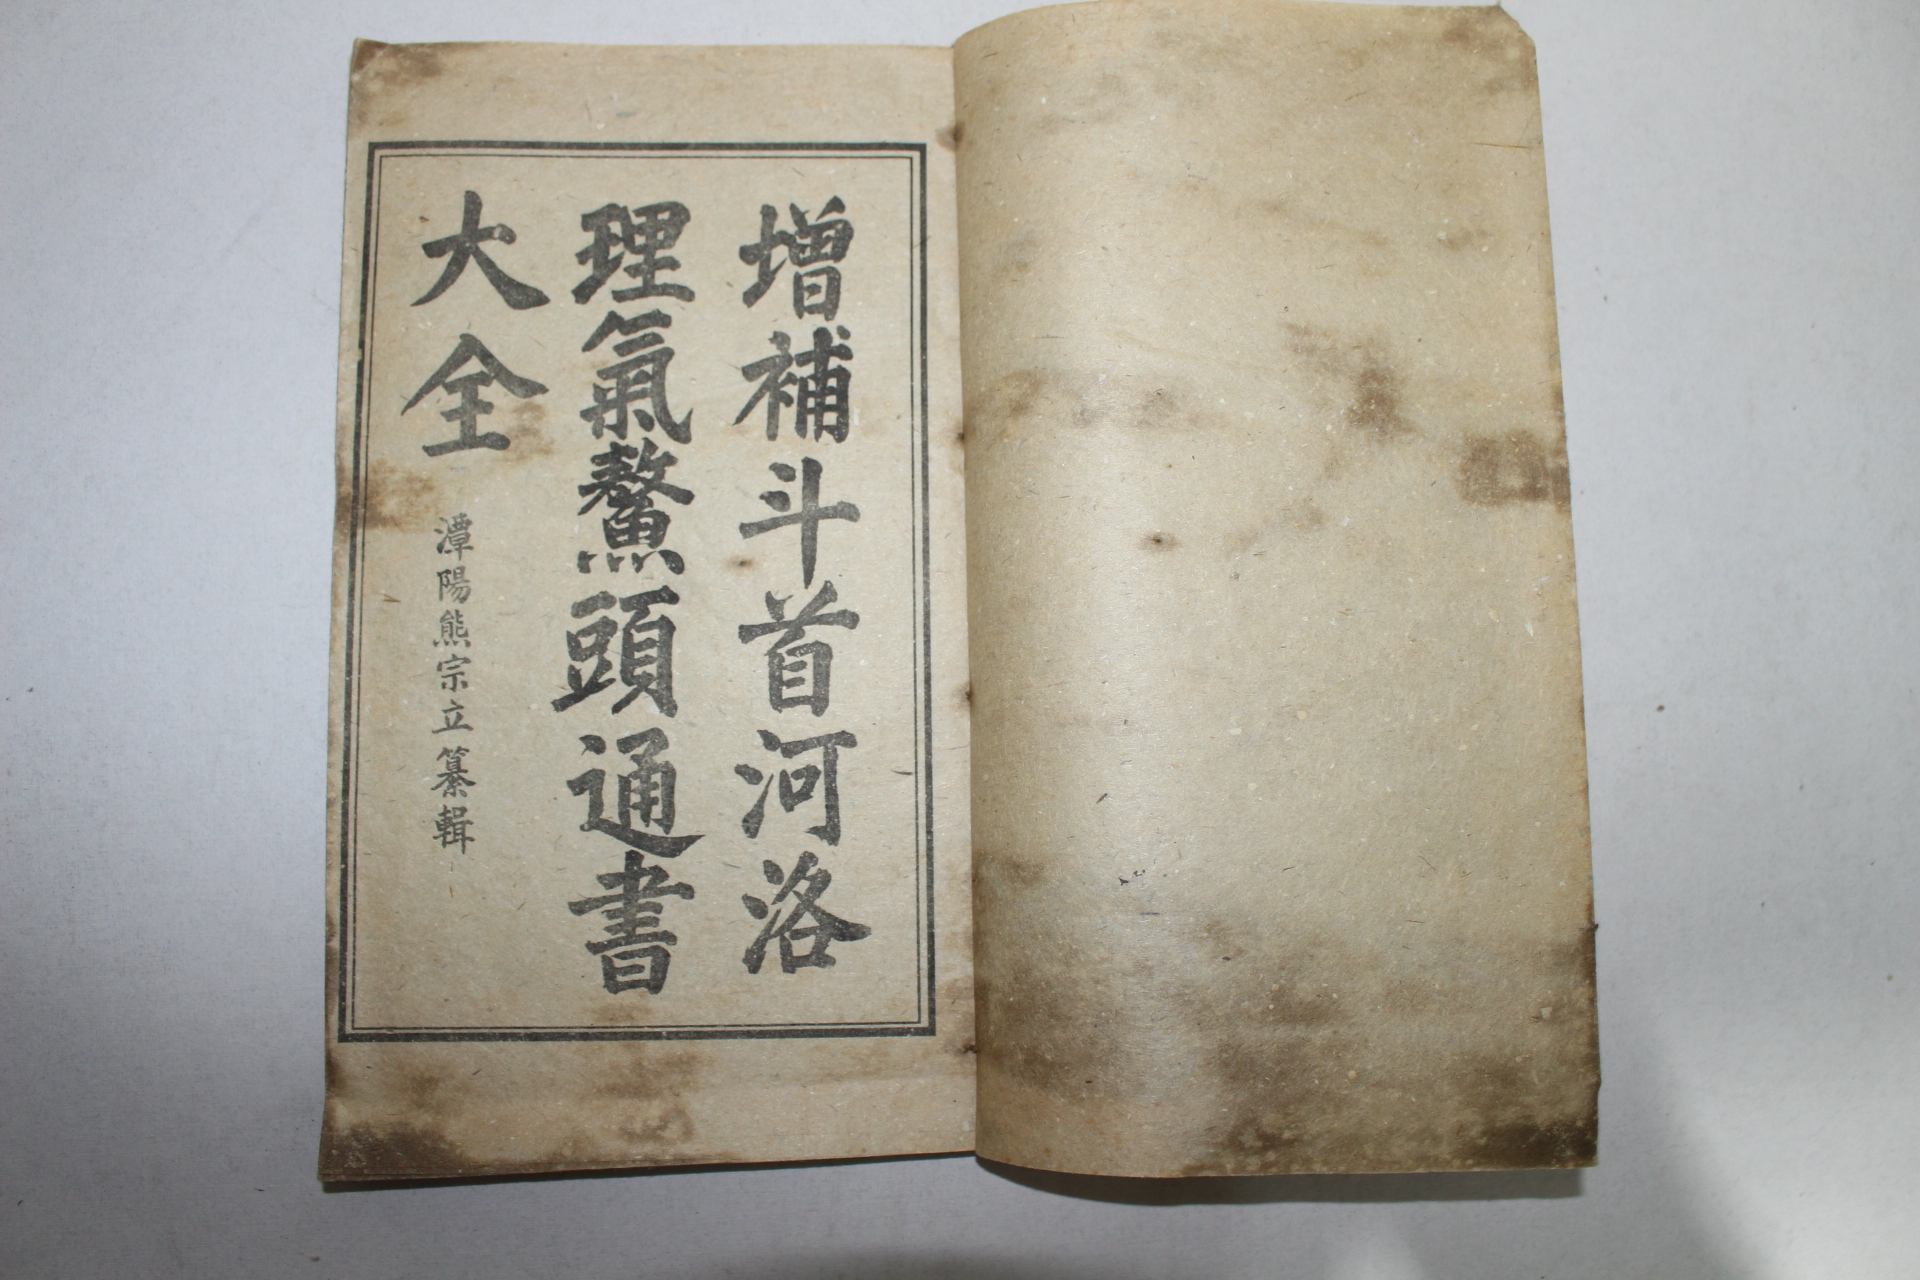 增補斗首河洛
理氣鰲頭通書
大全
潭陽熊宗立纂輯